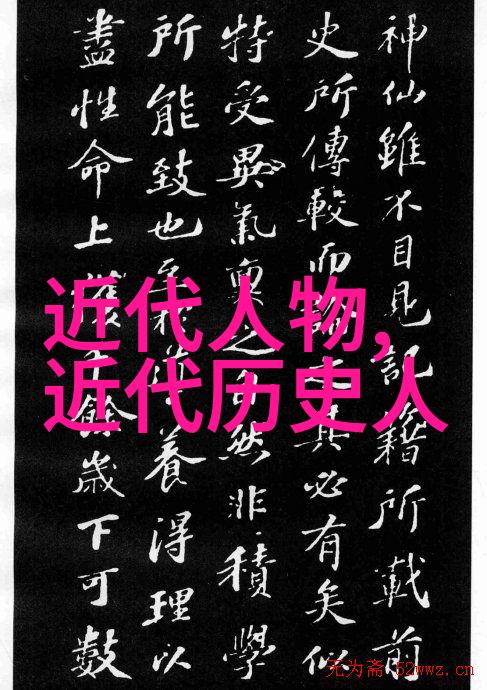 神仙雖不目見記籍所載前
史所傳較而論之其必有矣似
特受異氣稟之自然非積學
所能致也至於導養得理以
盡性命上獲千餘歲下可數
近代人物,
近代历史人
无为斋 52wwz.cn